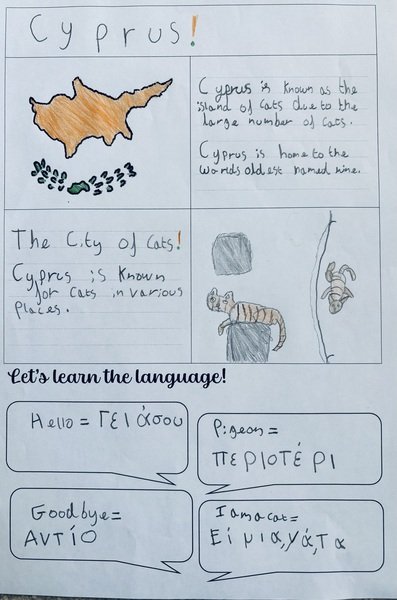 Cyprus!
Cyprus is known as the
island of cats due to the
large number of cats.
Cyprus is home to the
worlds oldest named wine.
The City of Cats!
Cyprus is known
for cats in various
places.
Let's learn the language!
Hello = ΓΕΙ άσου
Pigeon =
ΠΕΡΙΟΤΈΡΙ
Goodbye =
ΑΝΤΊΟ
I am a cat =
Εί μια,γά,Τα